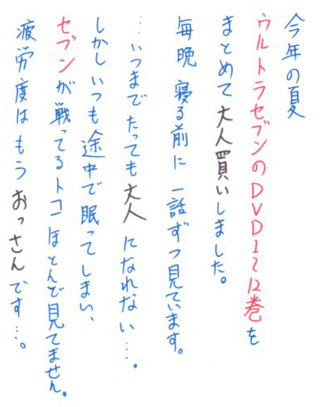 今年の夏
ウルトラセブンのDVD1～12巻を
まとめて大人買いしました。
毎晩 寝る前に 一話ずつ見ています。
…いつまでたっても大人になれない…。
しかしいつも途中で眠ってしまい、
セブンが戦ってるトコほとんど見てません。
疲労度はもうおっさんです…。